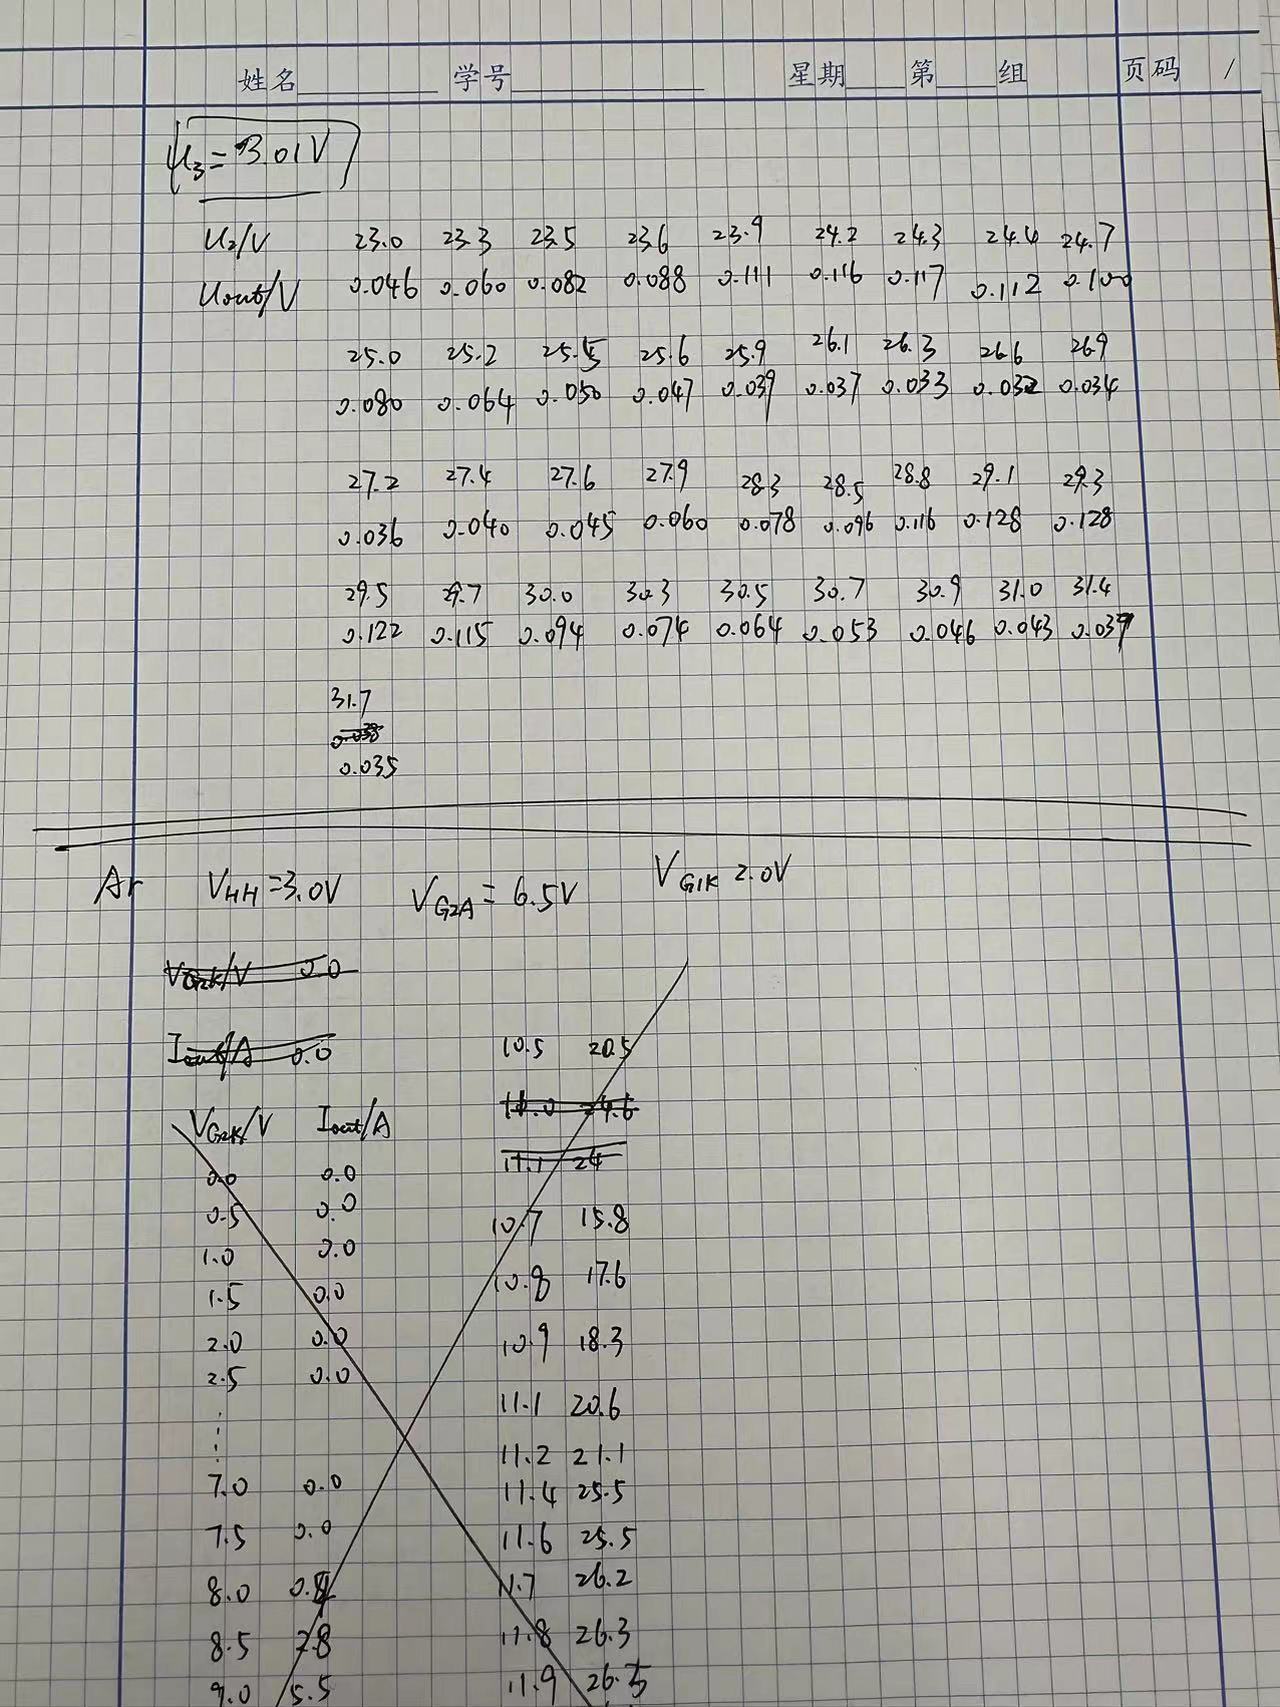 姓名 学号 星期 第 组 页码 /
U₃=3.01V
U₂/V 23.0 23.3 23.5 23.6 23.9 24.2 24.3 24.4 24.7
Uout/V 0.046 0.060 0.082 0.088 0.111 0.116 0.117 0.112 0.100
25.0 25.2 25.5 25.6 25.9 26.1 26.3 26.6 26.9
0.080 0.064 0.050 0.047 0.039 0.037 0.033 0.032 0.034
27.2 27.4 27.6 27.9 28.3 28.5 28.8 29.1 29.3
0.036 0.040 0.045 0.060 0.078 0.096 0.116 0.128 0.128
29.5 29.7 30.0 30.3 30.5 30.7 30.9 31.0 31.4
0.122 0.115 0.094 0.074 0.064 0.053 0.046 0.043 0.039
31.7
0.038
0.035
Ar VHH=3.0V VG2A=6.5V VG1K 2.0V
VG2K/V 0.0
Iout/A 0.0
VG2K/V Iout/A
0.0 0.0
0.5 0.0
1.0 0.0
1.5 0.0
2.0 0.0
2.5 0.0
⋮
7.0 0.0
7.5 0.0
8.0
8.5 2.8
9.0 5.5
10.5 20.5
11.0 24.6
11.1 24
10.7 15.8
10.8 17.6
10.9 18.3
11.1 20.6
11.2 21.1
11.4 25.5
11.6 25.5
11.7 26.2
11.8 26.3
11.9